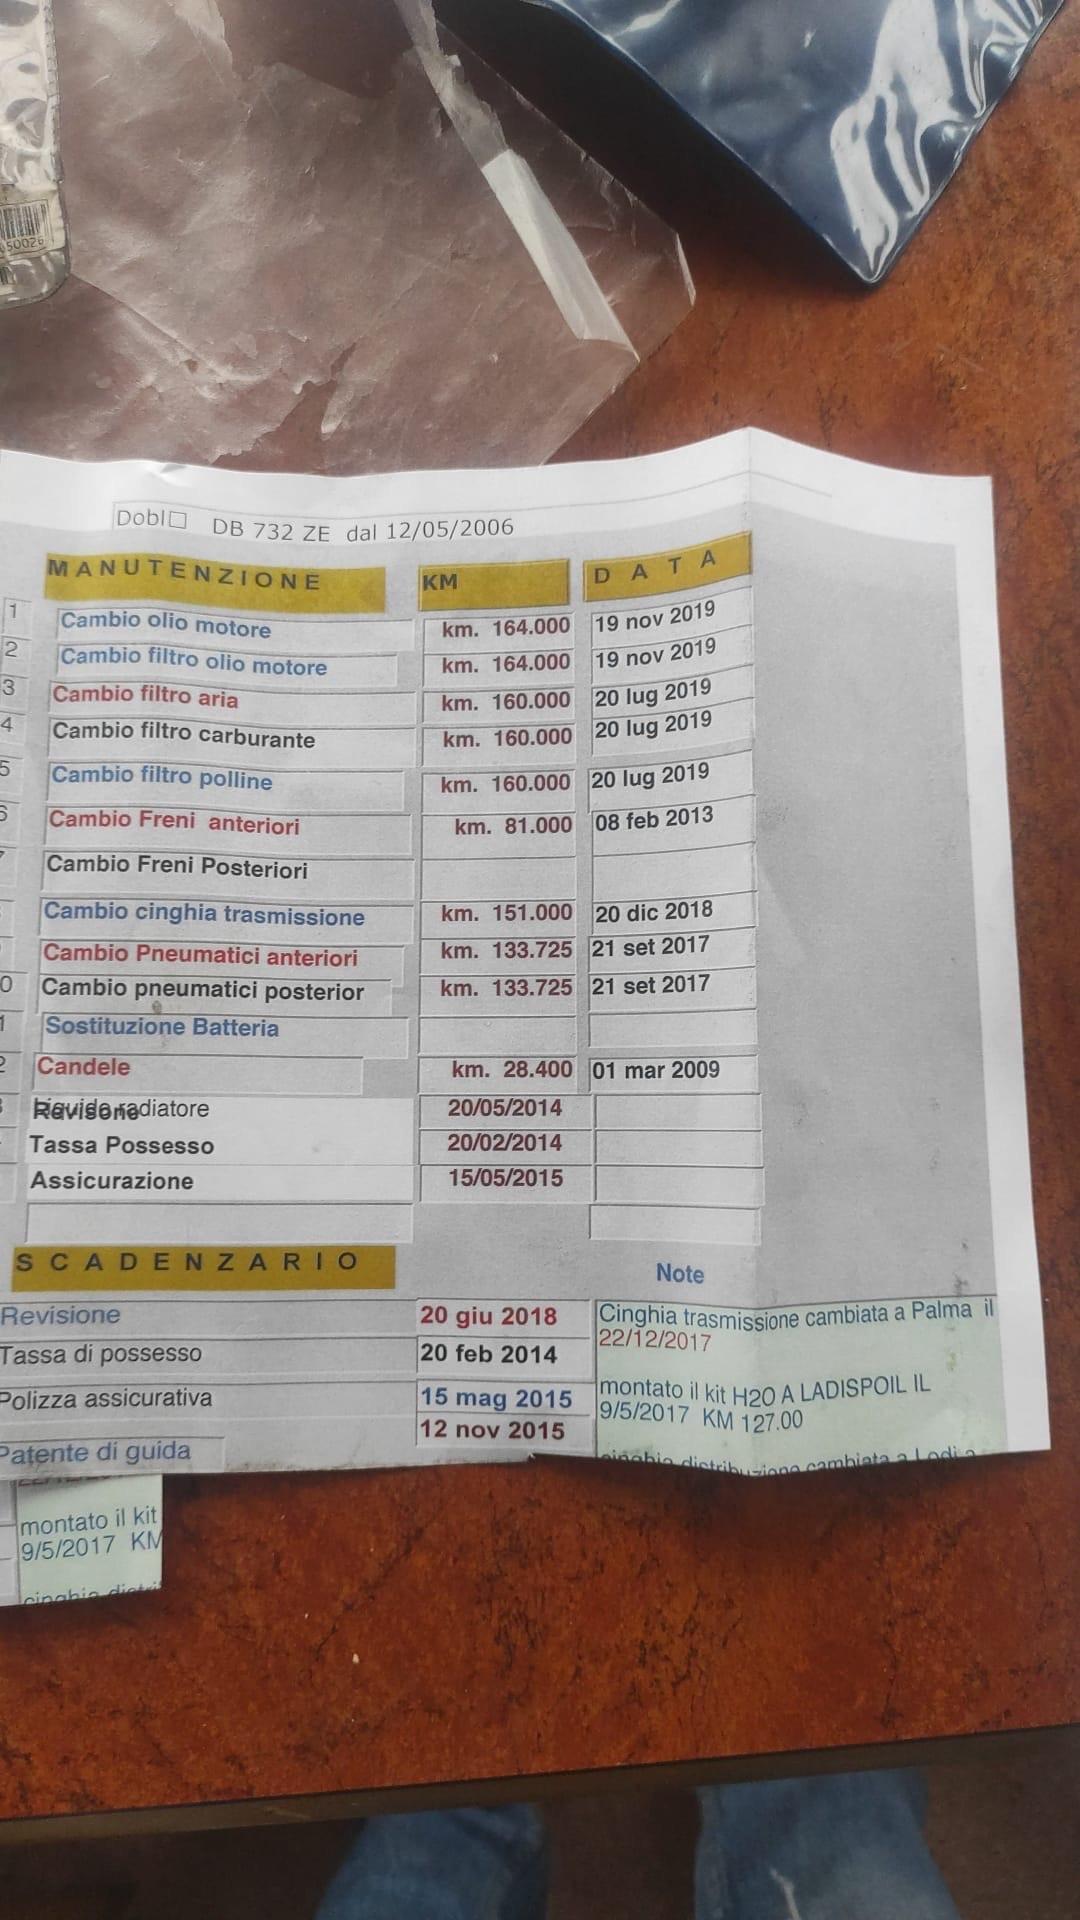 50026
Dobl□ DB 732 ZE dal 12/05/2006
MANUTENZIONE KM DATA
1 Cambio olio motore km. 164.000 19 nov 2019
2 Cambio filtro olio motore km. 164.000 19 nov 2019
3 Cambio filtro aria km. 160.000 20 lug 2019
4 Cambio filtro carburante km. 160.000 20 lug 2019
5 Cambio filtro polline km. 160.000 20 lug 2019
6 Cambio Freni anteriori km. 81.000 08 feb 2013
Cambio Freni Posteriori
Cambio cinghia trasmissione km. 151.000 20 dic 2018
Cambio Pneumatici anteriori km. 133.725 21 set 2017
0 Cambio pneumatici posterior km. 133.725 21 set 2017
1 Sostituzione Batteria
2 Candele km. 28.400 01 mar 2009
radiatore 20/05/2014
Tassa Possesso 20/02/2014
Assicurazione 15/05/2015
SCADENZARIO
Note
Revisione 20 giu 2018
Tassa di possesso 20 feb 2014
Polizza assicurativa 15 mag 2015
12 nov 2015
Patente di guida
Cinghia trasmissione cambiata a Palma il
22/12/2017
montato il kit H2O A LADISPOIL IL
9/5/2017 KM 127.00
cinghia distribuzione cambiata a Lodi a
montato il kit
9/5/2017 KM
cinghia distri